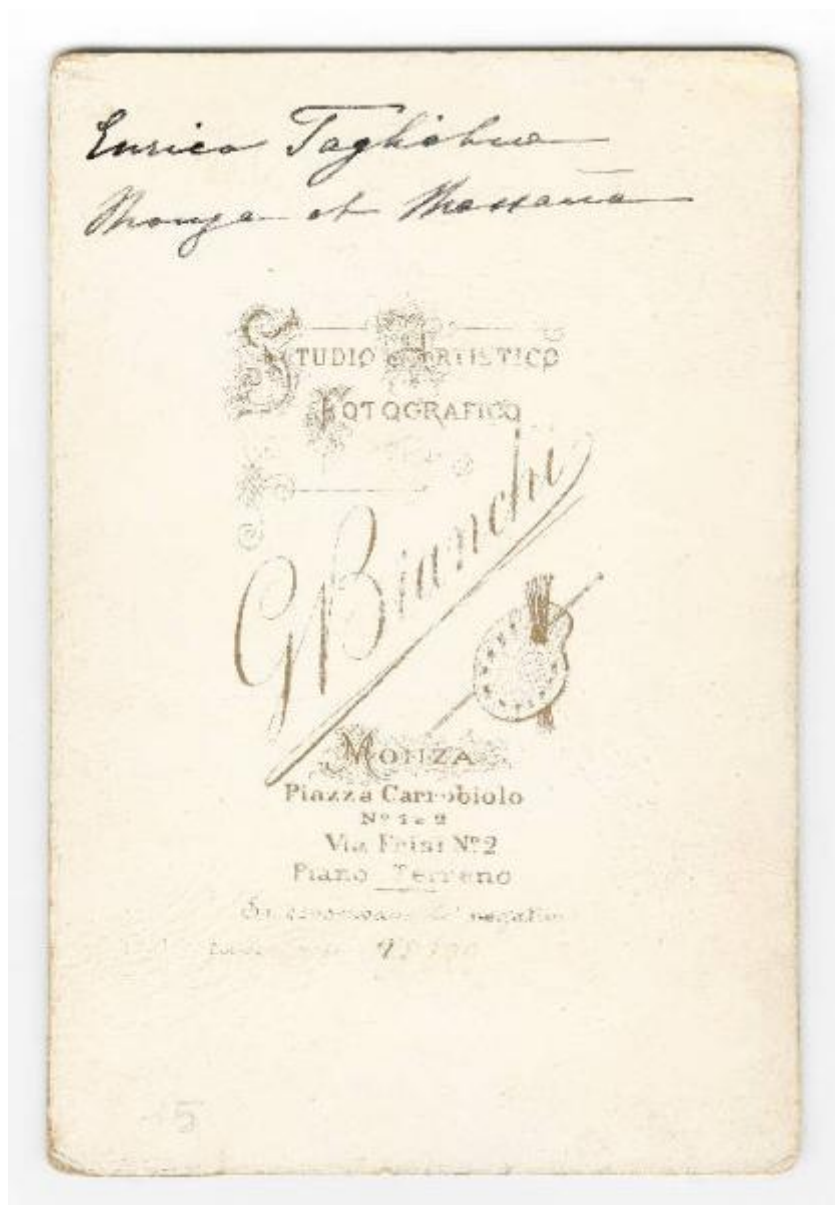 Enrico Tagliabue
Monza et Massaua
STUDIO ARTISTICO
FOTOGRAFICO
G Bianchi
MONZA
Piazza Carrobiolo
Nº 1 e 2
Via Frisi Nº 2
Piano Terreno
Si conservano le negative